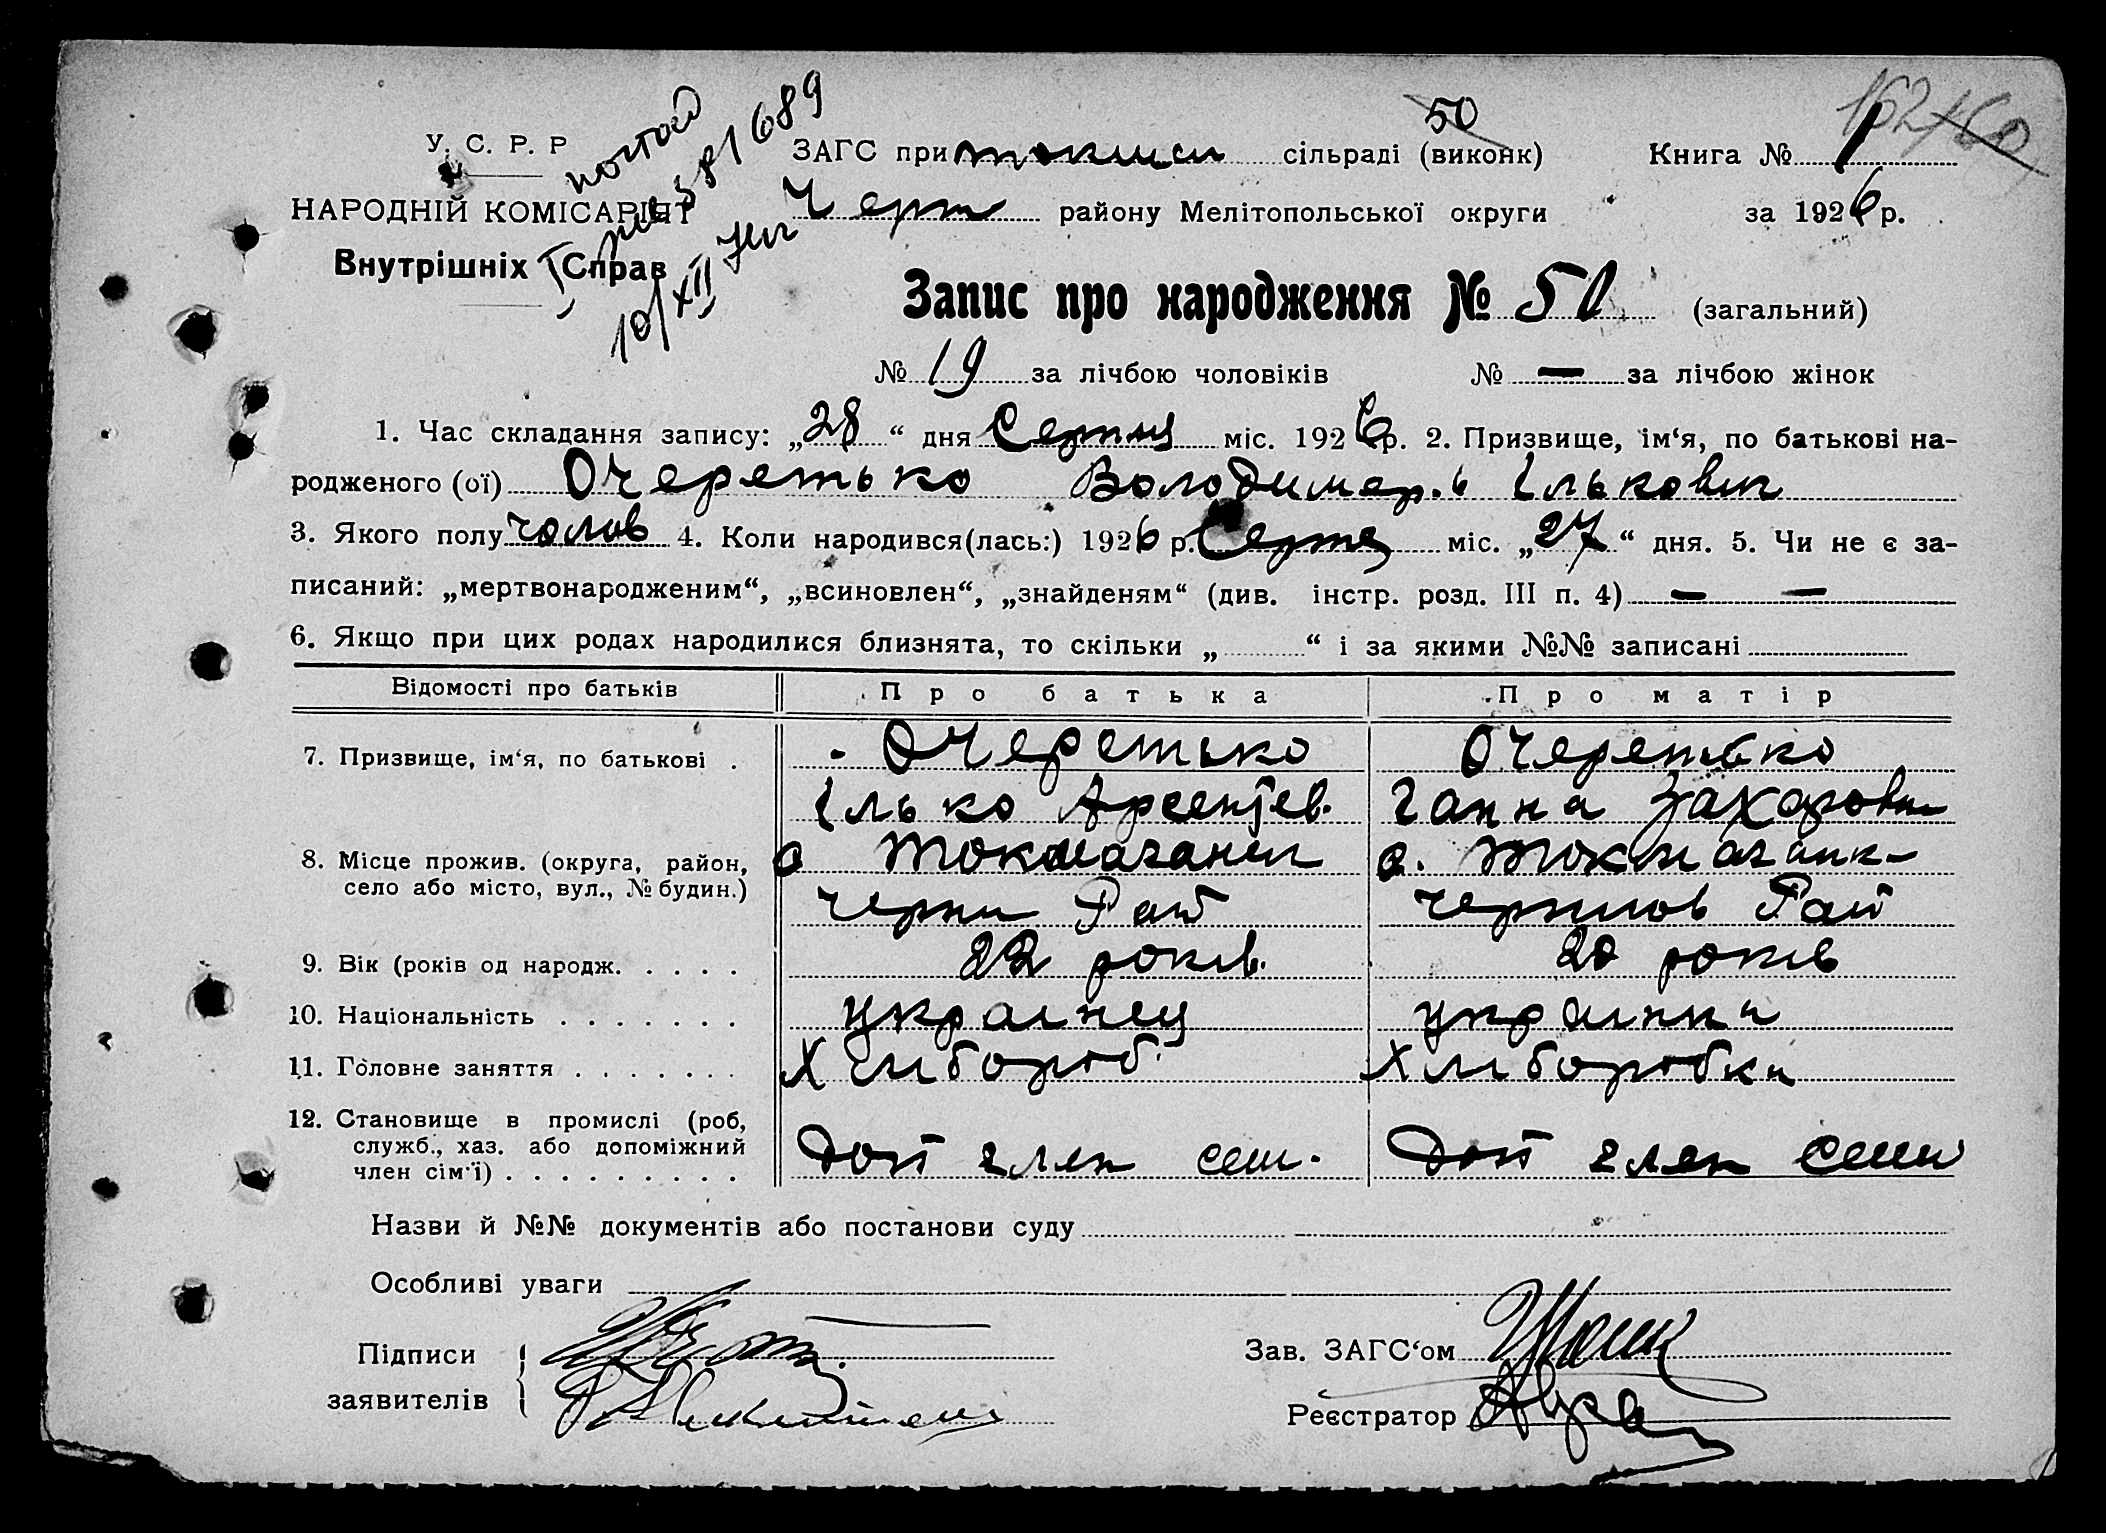 162 160
50
У. С. Р. Р
ЗАГС при сільраді (виконк) Книга № 1
НАРОДНІЙ КОМІСАРІЯТ
Черн району Мелітопольської округи за 1926 р.
Внутрішніх Справ
10/XII
Запис про народження № 50 (загальний)
№ 19 за лічбою чоловіків № — за лічбою жінок
1. Час складання запису: „28“ дня Серпня міс. 1926 р. 2. Призвище, ім‘я, по батькові на-
родженого (ої) Очеретько Володимер.ь Ількович
3. Якого полу чолов 4. Коли народився(лась:) 1926 р. Серпня міс. „27“ дня. 5. Чи не є за-
писаний: „мертвонародженим“, „всиновлен“, „знайденям“ (див. інстр. розд. III п. 4) — —
6. Якщо при цих родах народилися близнята, то скільки „ “ і за якими №№ записані
Відомості про батьків Про батька Про матір
7. Призвище, ім‘я, по батькові . Очеретько Очеретько
Ілько Арсентіев. Ганна Захаровна
8. Місце прожив. (округа, район, с с.
село або місто, вул., № будин.) Рай Рай
9. Вік (років од народж. . . . . 22 років. 20 років
10. Національність . . . . . . . українец українка
11. Головне заняття . . . . . . . Хлибороб Хлиборобка
12. Становище в промислі (роб,
служб., хаз. або допоміжний
член сім‘ї) . . . . . . . . . Доп член сем. Доп член семи
Назви й №№ документів або постанови суду
Особливі уваги
Підписи Зав. ЗАГС‘ом
заявителів Реєстратор